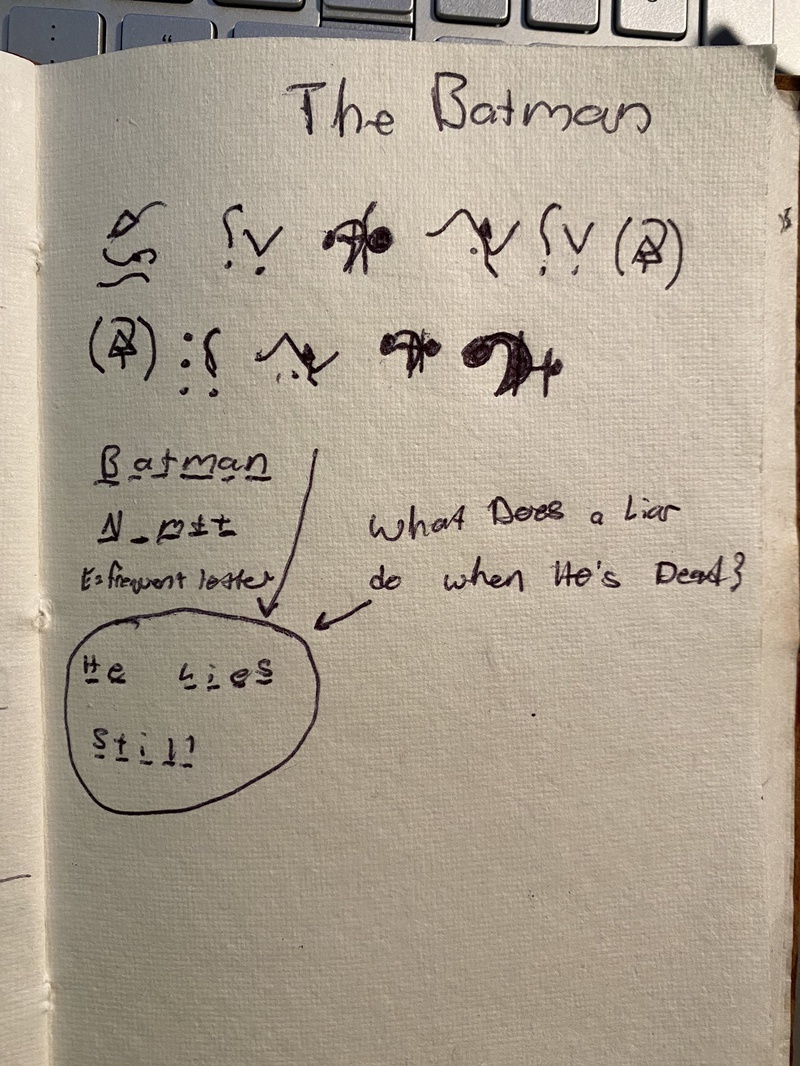 The Batman
Batman
E=frequent letter
What Does a Liar
do when He's Dead?
He Lies
Still